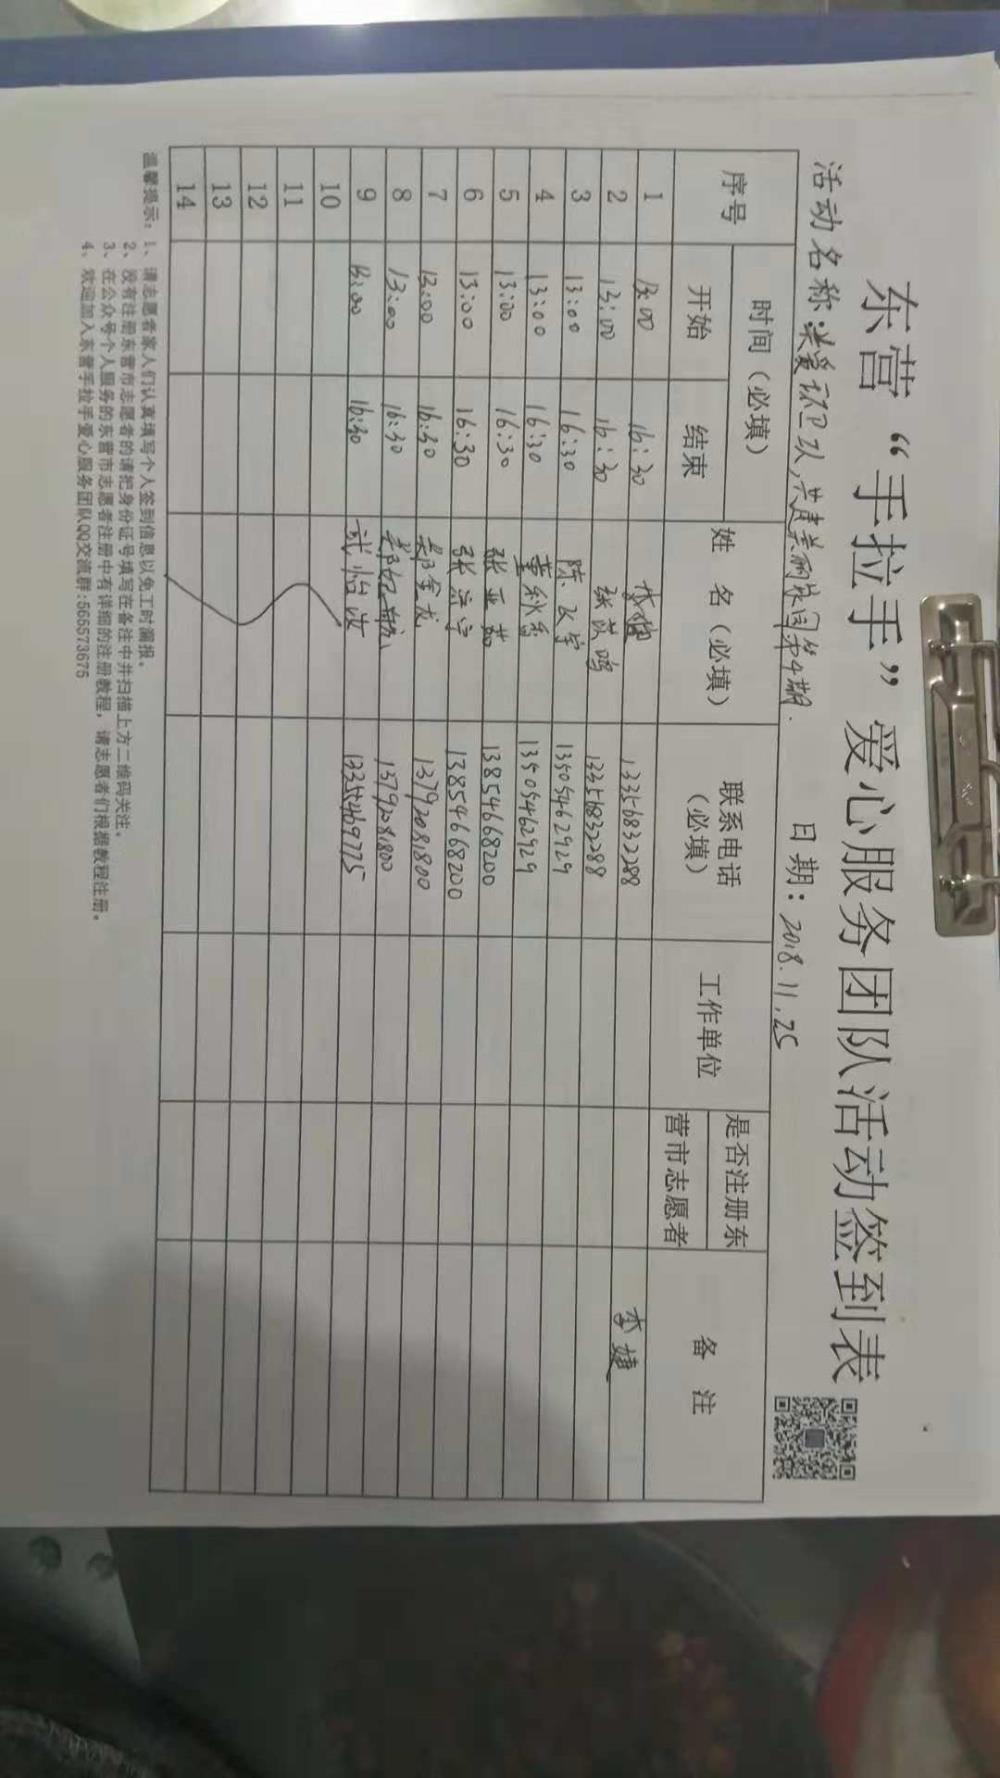 东营“手拉手”爱心服务团队活动签到表
活动名称:关爱环卫工人,共建美丽家园第4期. 日期:2018.11.25
序号 时间(必填) 姓 名(必填) 联系电话(必填) 工作单位 是否注册东营市志愿者 备 注
开始 结束
1 13:00 16:30 13356832288
2 13:00 16:30 张荻鸣 13356832288 李婕
3 13:00 16:30 陈 宇 13505462929
4 13:00 16:30 董秋香 13505462929
5 13:00 16:30 张亚茹 13854668200
6 13:00 16:30 张洁宇 13854668200
7 13:00 16:30 郭金龙 13792081800
8 13:00 16:30 13792081800
9 13:00 16:30 武怡汝 13355469775
10
11
12
13
14
温馨提示:1、请志愿者家人们认真填写个人签到信息以免工时漏报。
2、没有注册东营市志愿者的请把身份证号填写在备注中并扫描上方二维码关注。
3、在公众号个人服务的东营市志愿者注册中有详细的注册教程,请志愿者们根据教程注册。
4、欢迎加入东营手拉手爱心服务团队QQ交流群:565573675